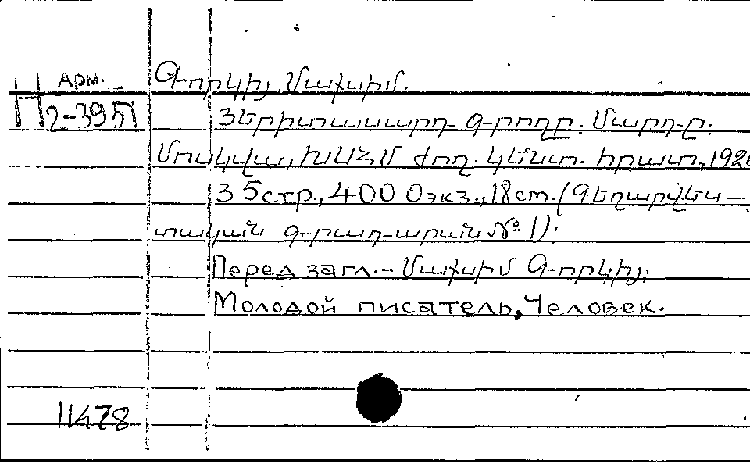 Арм. Գորկիյ Մաքսիմ.
П2-3951
Յերիտասարդ գրողը. Մարդը.
Մոսկվա, ԽՍՀՄ ժող. կենտ. հրատ., 192
35стр., 4000экз., 18cm. (Գեղարվես-
տական գրադարան № 1):
Перед загл.- Մաքսիմ Գորկիյ.
Молодой писатель, Человек.
11478